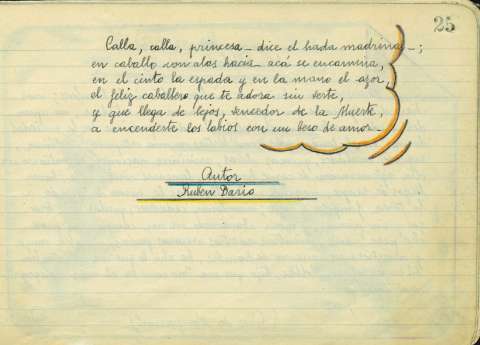 25
Calla, calla, princesa - dice el hada madrina - ;
en caballo con alas hacia acá se encamina,
en el cinto la espada y en la mano el azor,
el feliz caballero que te adora sin verte,
y que llega de lejos, vencedor de la Muerte,
a encenderte los labios con un beso de amor.
Autor
Ruben Dario